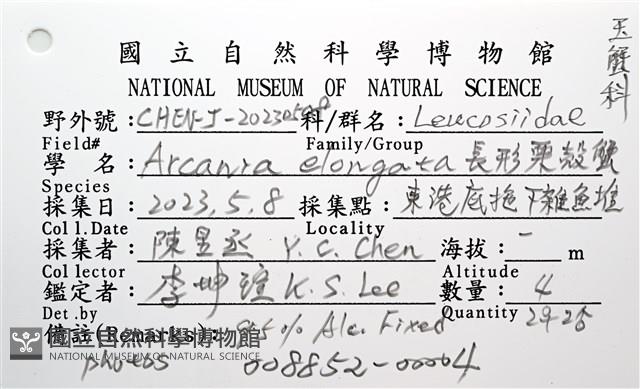 玉蟹科
國立自然科學博物館
NATIONAL MUSEUM OF NATURAL SCIENCE
野外號：CHEN-J-20230508 科/群名：Leucosiidae
Field# Family/Group
學 名：Arcania elongata 長形栗殼蟹
Species
採集日：2023.5.8 採集點：東港底拖下雜魚堆
Coll.Date Locality
採集者：陳昱丞 Y. C. Chen 海拔：- m
Collector Altitude
鑑定者：李坤瑄 K. S. Lee 數量：4
Det.by Quantity
備註(Remarks)：95% Alc. Fixed
國立自然科學博物館
NATIONAL MUSEUM OF NATURAL SCIENCE
photos 008852-00004